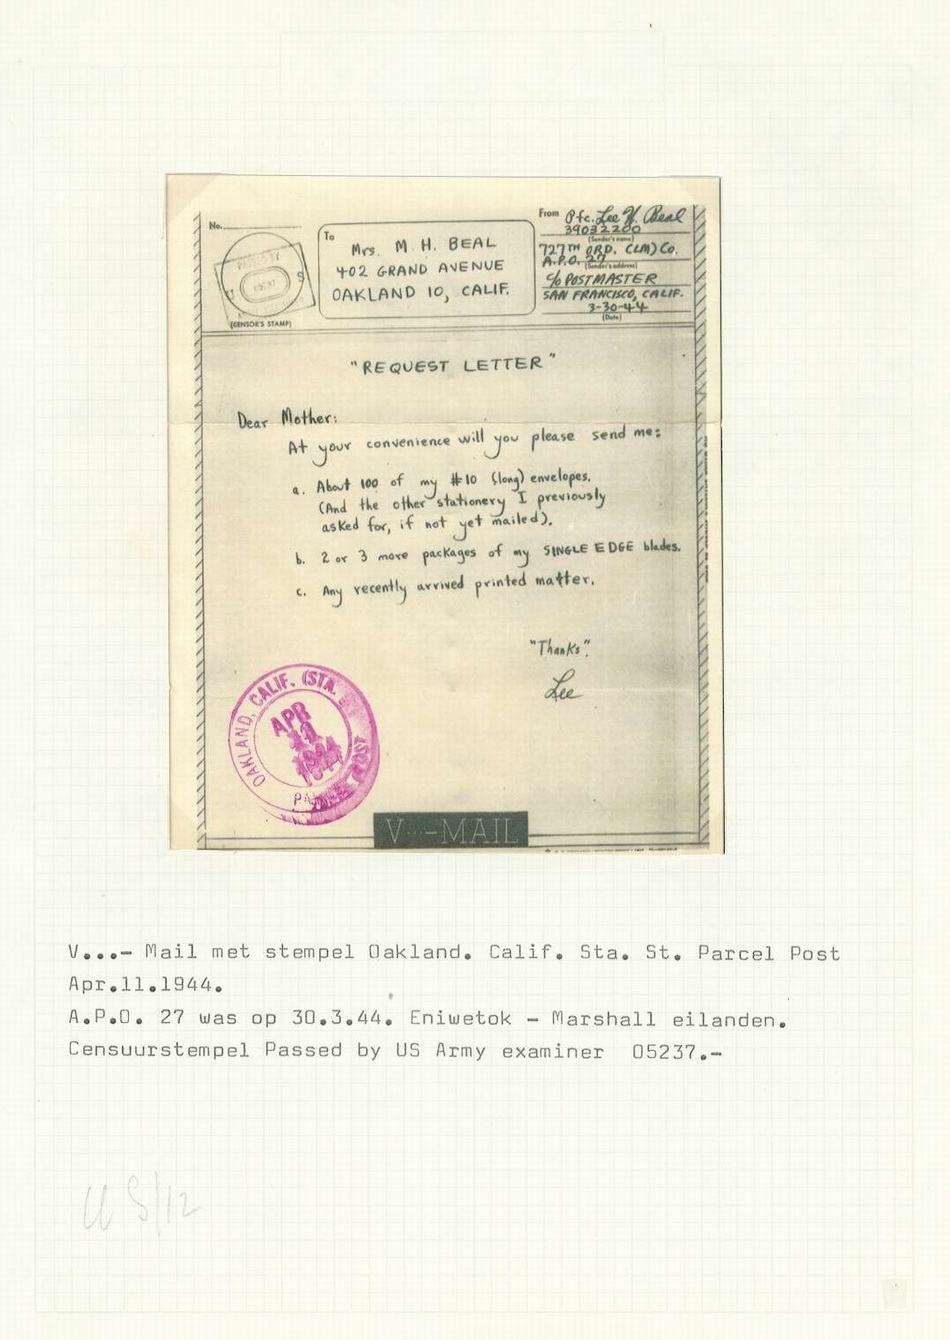 No.
To
Mrs. M. H. BEAL
402 GRAND AVENUE
OAKLAND 10, CALIF.
From Pfc. Lee H. Beal
39032200
(Sender's name)
727TH ORD. (LM) Co.
A.P.O. 27
(Sender's address)
c/o POSTMASTER
SAN FRANCISCO, CALIF.
3-30-44
(Date)
(CENSOR'S STAMP)
"REQUEST LETTER"
Dear Mother:
At your convenience will you please send me:
a. About 100 of my #10 (long) envelopes.
(And the other stationery I previously
asked for, if not yet mailed).
b. 2 or 3 more packages of my SINGLE EDGE blades.
c. Any recently arrived printed matter.
"Thanks".
Lee
OAKLAND, CALIF. (STA.
APR
11
1944
V···-MAIL
V...- Mail met stempel Oakland. Calif. Sta. St. Parcel Post
Apr.11.1944.
A.P.O. 27 was op 30.3.44. Eniwetok - Marshall eilanden.
Censuurstempel Passed by US Army examiner 05237.-
US/12